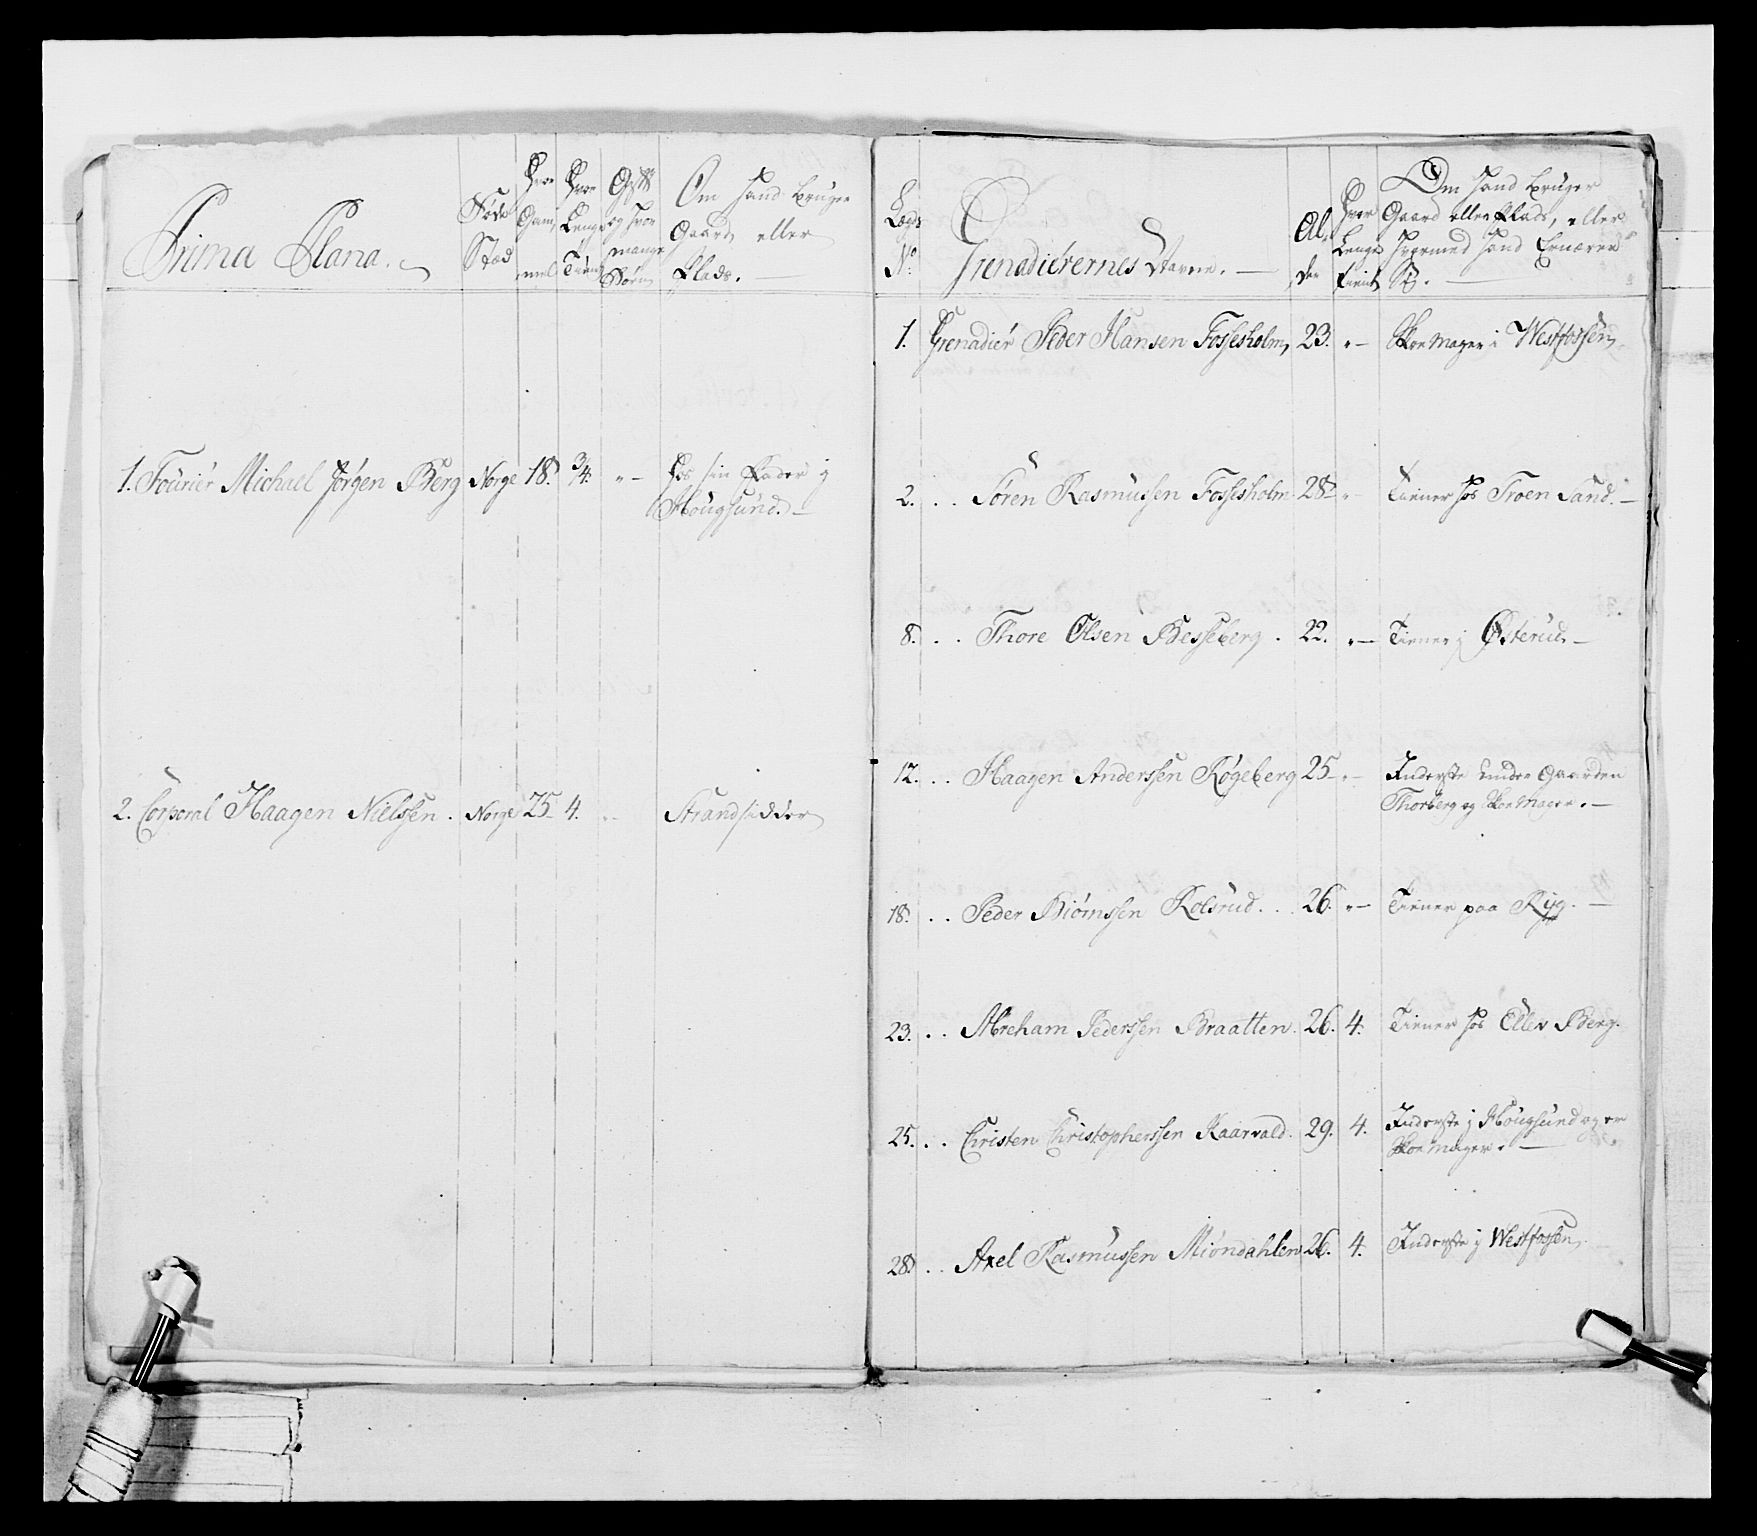 Prima Plana.
Føde Stæd
Hvor Gammel
Hvor Lenge Tient
Gift og hvor mange Børn
Om hand bruger Gaard eller Plads.
1. Fourier Michael Jørgen Berg Norge 18. 3/4. " — hos sin Fader i
Hougsund. —
2. Corporal Haagen Nielssen. Norge 25 4. " — Strandsidder
Lægds No.
Grenadierernes Navne. —
Alder
Hvor Lenge tient
Om hand bruger Gaard eller Plads, eller hvormed hand Ernærer Sig. —
1. Grenadiér Peder Hansen Fossesholm, 23. " — Skoemager i Westfossen,
2. . . Sören Rasmussen Fossesholm 28 " — Tiener hos Troen Sand. —
8. . . Thore Olsen Besseberg. 22. " — Tiener i Østerud. —
12. . . Haagen Anderssen Røgeberg 25 " — Inderste under Gaarden
Thorberg og Skoemager. —
18. . . Peder Biørnssen Kolsrud. . . 26. " — Tiener paa Ryg. —
23. . . Abreham Pederssen Braatten. 26. 4. Tiener hos Ellev Berg.
25. . . Christen Christopherssen Kaarvald. 29. 4. Inderste i Hougsund og er
Skoemager. —
28. . . Axel Rasmussen Miøndahlen 26. 4. Inderste i Westfossen,